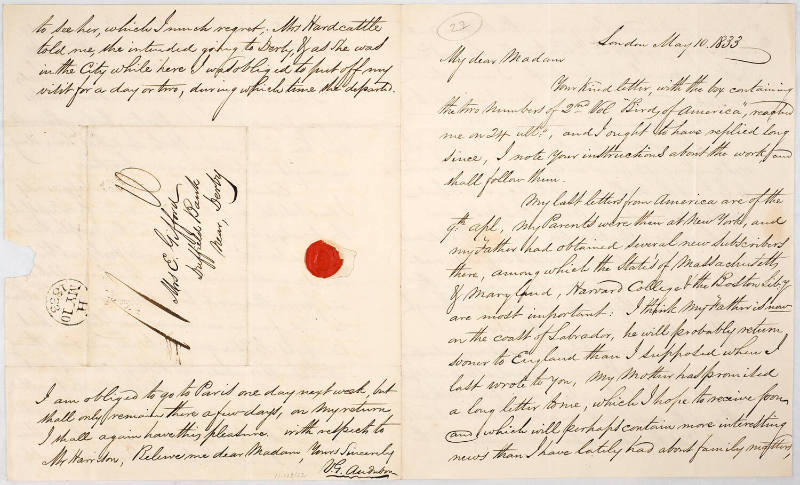 22
London May 10. 1833
My dear Madam
Your kind letter, with the box containing
the two numbers of 2nd Vol "Birds of America", reached
me on 24 ulto, and I ought to have replied long
since, I note your instructions about the work, and
shall follow them.
My last letters from America are of the
9th Apl, my Parents were then at New York, and
my Father had obtained several new subscribers
there, among which the State's of Massachusetts
& Maryland, Harvard College & the Boston Liby
are most important: I think my Father is now
on the coast of Labrador, he will probably return
sooner to England than I supposed when I
last wrote to you, My Mother has promised
a long letter to me, which I hope to receive soon
and which will perhaps contain more interesting
news than I have lately had about family matters
to see her, which I much regret, Mrs Hardcastle
told me, she intended going to Derby, & as she was
in the City while here I was obliged to put off my
visit for a day or two, during which time she departed.
Mrs E. Gifford
Duffield Bank
Near, Derby
H
MY 10
1833
I am obliged to go to Paris one day next week, but
shall only remain there a few days, on my return
I shall again have this pleasure. With respects to
Mr Harrison, Believe me dear Madam, Yours Sincerely
V.G. Audubon